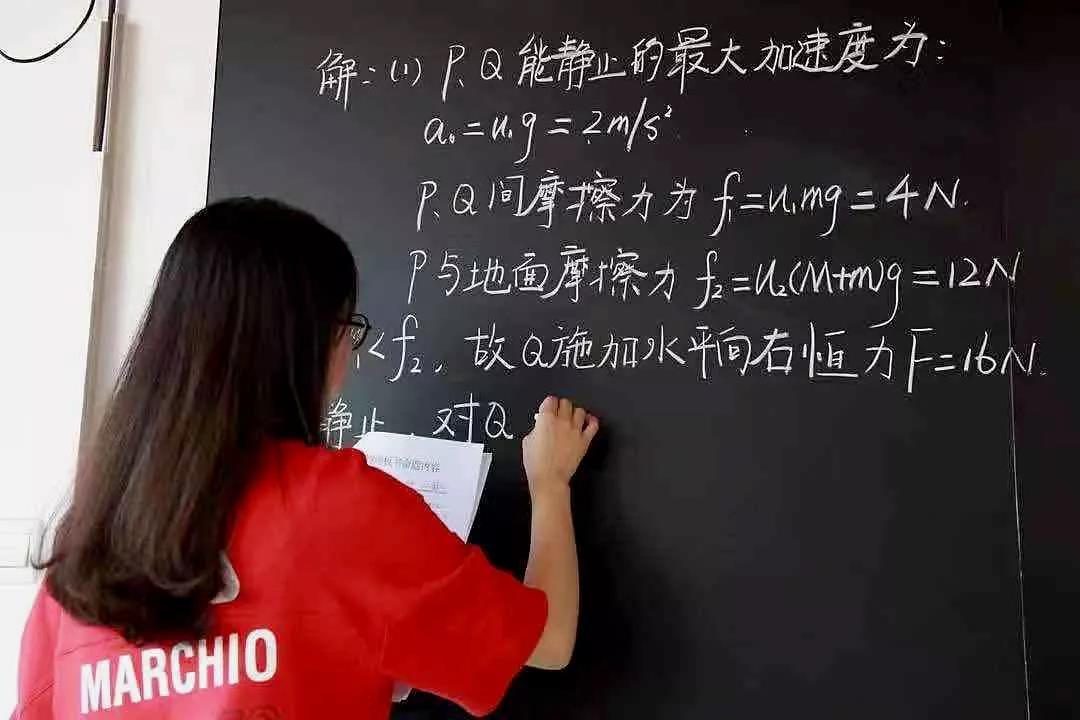 解：(1) P、Q能静止的最大加速度为：
a₀=u₁g=2m/s²
P、Q间摩擦力为 f₁=u₁mg=4N.
P与地面摩擦力 f₂=u₂(M+m)g=12N
<f₂，故Q施加水平向右恒力F=16N.
静止，对Q
MARCHIO